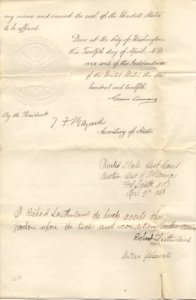 my name and caused the seal of the United States
to be affixed.
Done at the City of Washington
this Twelfth day of April A.D.
1888 and of the Independence
of the United States the one
hundred and twelfth.
Grover Cleveland
By the President:
T F Bayard
Secretary of State
United States
Western Dist of
April 27 1888
I, Richard Smitherland do hereby accept the
pardon upon the terms and conditions
Richard Smitherland